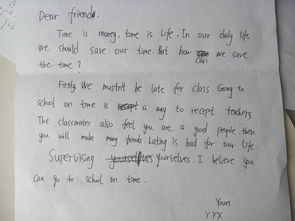 Dear friends.
Time is money, time is life. In our daily life
we should save our time. But how can we save
the time?
Firstly We mustn't be late for class. Going to
school on time is a way to recept teachers
The classmates also feel you are a good people. then
you will make many friends. Lating is bad for our life
Supervising yourselves. I believe you
can go to school on time.
Yours
YYX